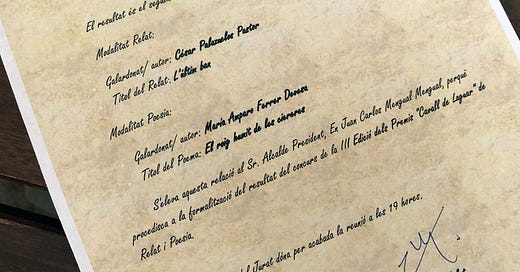 El resultat és el següe
Modalitat Relat:
Galardonat/ autor: César Palazuelos Pastor
Títol del Relat: L'últim bes
Modalitat Poesia:
Galardonat/ autor: María Amparo Ferrer Devesa
Títol del Poema: El roig bauxit de les cireres
S'eleva aquesta relació al Sr. Alcalde President, En Juan Carlos Mengual Mengual, perquè
procedisca a la formalització del resultat del concurs de la III Edició dels Premis "Cavall de Laguar" de
Relat i Poesia.
l Jurat dóna per acabada la reunió a les 19 hores.